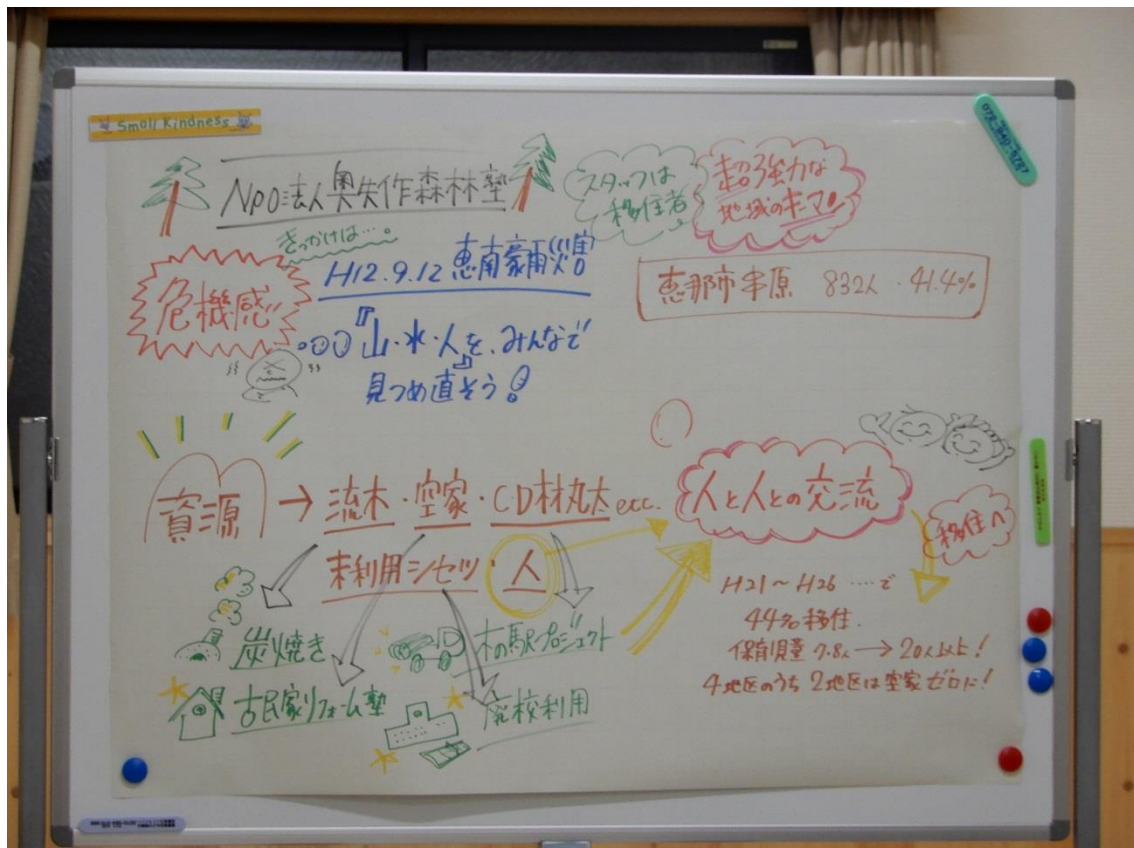 Small Kindness
NPO法人奥矢作森林塾
スタッフは
移住者
超強力な
地域のキーマン!
きっかけは…。
危機感
H12.9.12 恵南豪雨災害
恵那市串原 832人・41.4%
『山・水・人』を、みんなで
見つめ直そう!
資源
→ 流木・空家・CD材丸太 etc.
未利用シセツ・人
人と人との交流
移住へ
炭焼き
木の駅プロジェクト
古民家リフォーム塾
廃校利用
H21〜H26 ……で
44名移住.
保育児童 7.8人 → 20人以上!
4地区のうち 2地区は空家ゼロに!